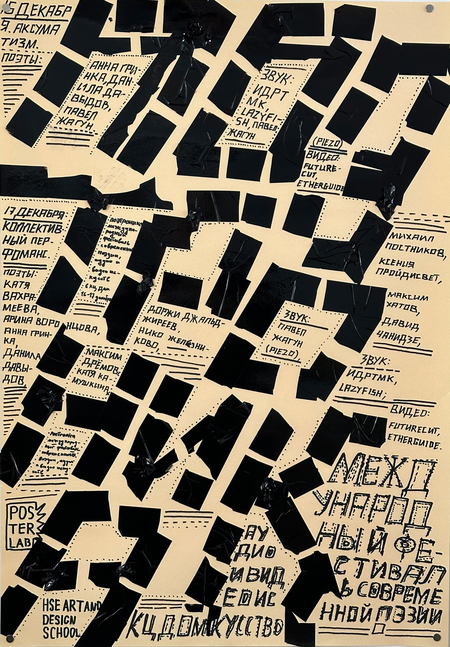 15 ДЕКАБРЯ. АКСУМАТИЗМ.
ПОЭТЫ:
АННА ГРИ-
НКА, ДАН-
ИЛА ДА-
ВЫДОВ,
ПАВЕЛ
ЖАГУН
ЗВУК:
ИДРТ
МК,
LAZYFI-
SH, ПАВЕЛ
ЖАГУН
(PIEZO)
ВИДЕО:
FUTURE-
CUT,
ETHERGUIDE
17 ДЕКАБРЯ:
КОЛЛЕКТИВ-
НЫЙ ПЕР-
ФОМАНС.
ПОЭТЫ:
КАТЯ
ВАХРА-
МЕЕВА,
АРИНА ВОРОНЦОВА,
АННА ГРИН-
КА,
ДАНИЛА
ДАВЫ-
ДОВ,
МАКСИМ
ДРЁМОВ,
КАТЯ КА-
МУШКИНА
ДОРЖИ ДЖАЛЬД-
ЖИРЕЕВ,
НИКО ЖЕЛЕЗНИ-
КОВО,
ЗВУК:
ПАВЕЛ
ЖАГУН
(PIEZO)
МИХАИЛ
ПОСТНИКОВ,
КСЕНИЯ
ПРОЙДИСВЕТ,
МАКСИМ
ХАТОВ,
ДАВИД
ЧАНИДЗЕ,
ЗВУК:
ИДРТМК,
LAZYFISH;
ВИДЕО:
FUTURECUT,
ETHERGUIDE.
МЕЖД
УНАРОД
НЫЙ ФЕ-
СТИВАЛ
Ь СОВРЕМЕ
ННОЙ ПЭЗИИ
POS
TER
LAB
HSE ART AND
DESIGN
SCHOOL
АУ
ДИО
И ВИД
ЕО ИС
КУССТВО
КЦ ДОМ